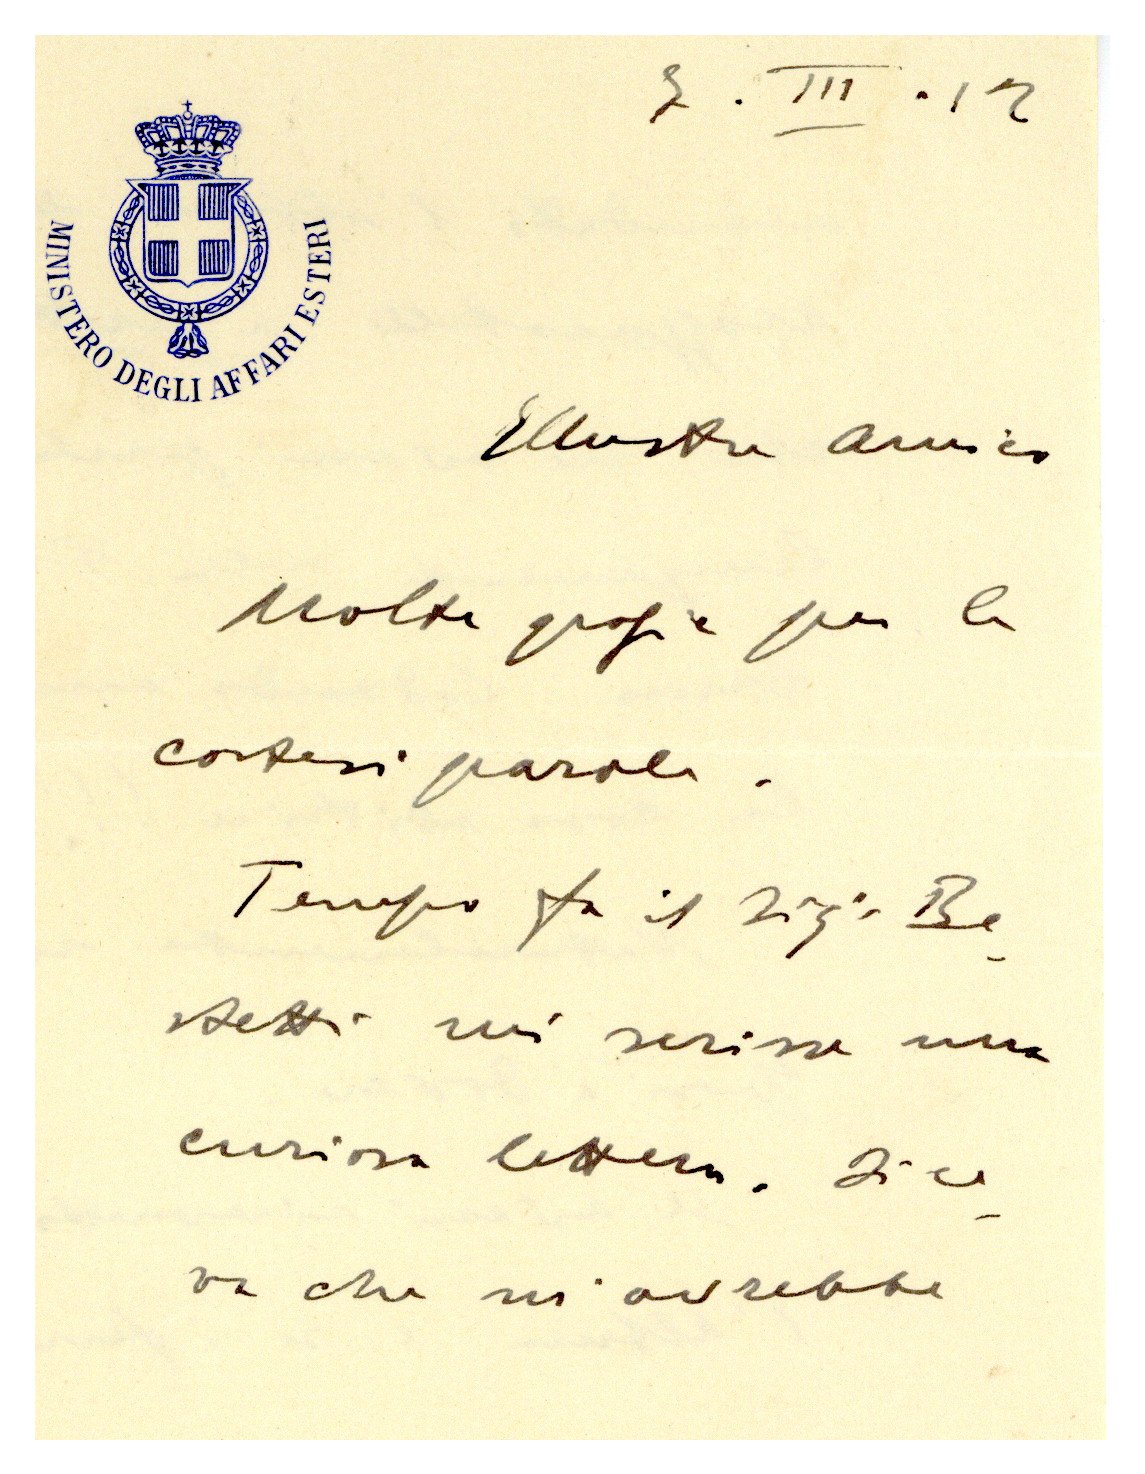 . III . 12
MINISTERO DEGLI AFFARI ESTERI
Illustre amico
Molte grazie per le
cortesi parole.
Tempo fa il Sig. Be_
stetti mi scrisse una
curiosa lettera. Dice_
va che mi avrebbe